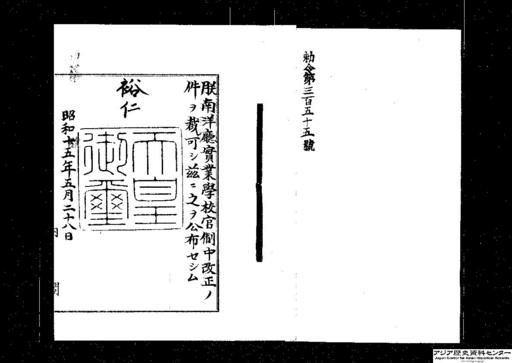 勅令第三百五十五號
朕南洋廳實業學校官制中改正ノ
件ヲ裁可シ茲ニ之ヲ公布セシム
裕仁
天皇
御璽
昭和十五年五月二十八日
アジア歴史資料センター
Japan Center for Asian Historical Records